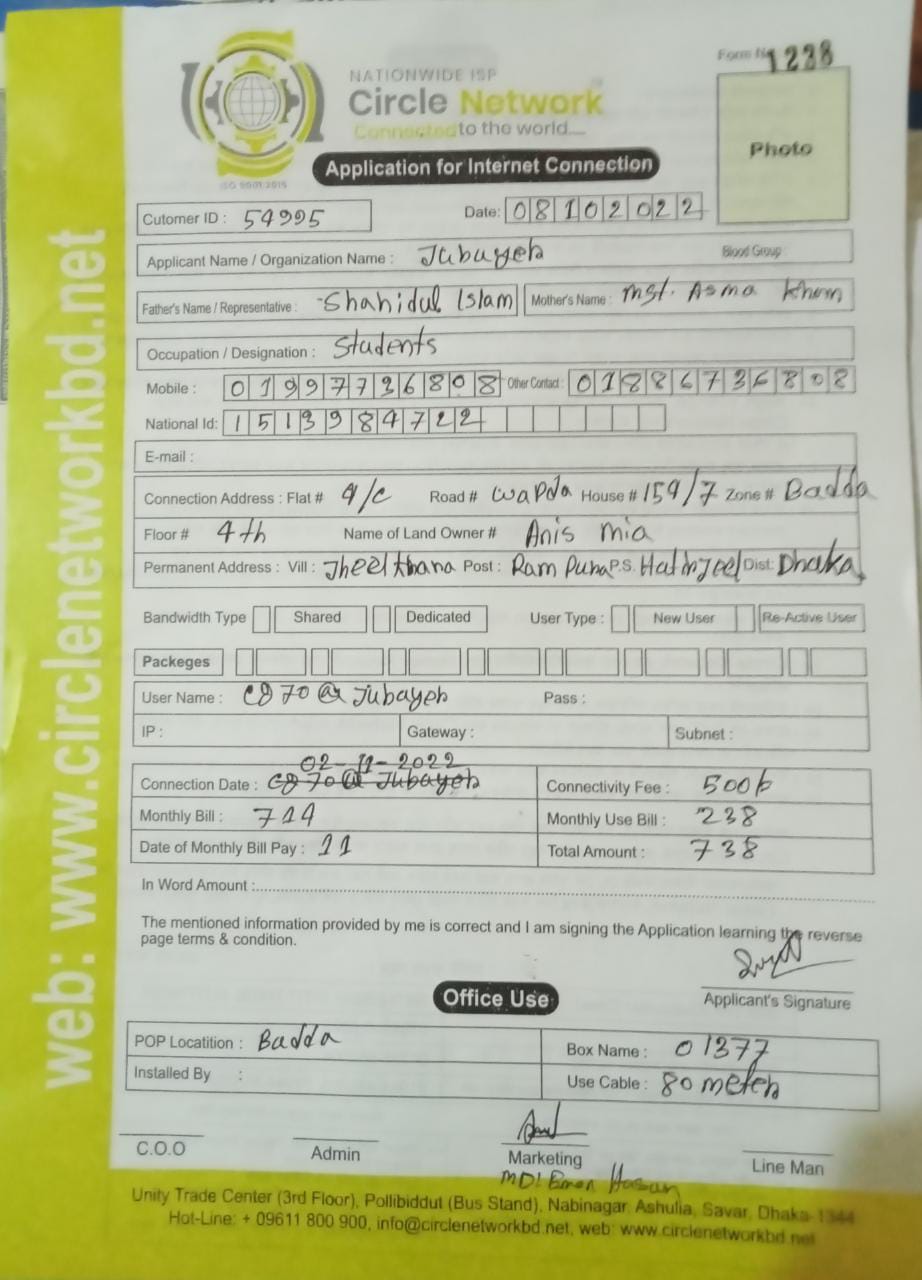 Form No 1238
NATIONWIDE ISP
Circle Network
Connected to the world....
ISO 9001:2015
Application for Internet Connection
Photo
Cutomer ID : 54995
Date: 08102022
Applicant Name / Organization Name : Jubayeh
Blood Group :
Father's Name / Representative : Shahidul Islam Mother's Name : Mst. Asma
Occupation / Designation : Students
Mobile : 01997736808 Other Contact : 01886736808
National Id: 1513984722
E-mail :
Connection Address : Flat # 4/C Road # Wapda House # 159/7 Zone # Badda
Floor # 4th Name of Land Owner # Anis mia
Permanent Address : Vill : Jheelkhana Post : Ram Pura P.S. Hatinjeel Dist: Dhaka
Bandwidth Type Shared Dedicated User Type : New User Re-Active User
Packeges
User Name : Pass :
IP : Gateway : Subnet :
02-11-2022
Connection Date : Connectivity Fee : 500
Monthly Bill : 714 Monthly Use Bill : 238
Date of Monthly Bill Pay : 11 Total Amount : 738
In Word Amount :
The mentioned information provided by me is correct and I am signing the Application learning the reverse
page terms & condition.
Applicant's Signature
Office Use
POP Locatition : Badda Box Name : 01377
Installed By : Use Cable : 80 meteh
C.O.O Admin Marketing Line Man
MD: Emon Hasan
Unity Trade Center (3rd Floor), Pollibiddut (Bus Stand), Nabinagar, Ashulia, Savar, Dhaka-1344
Hot-Line: + 09611 800 900, info@circlenetworkbd.net, web: www.circlenetworkbd.net
web: www.circlenetworkbd.net